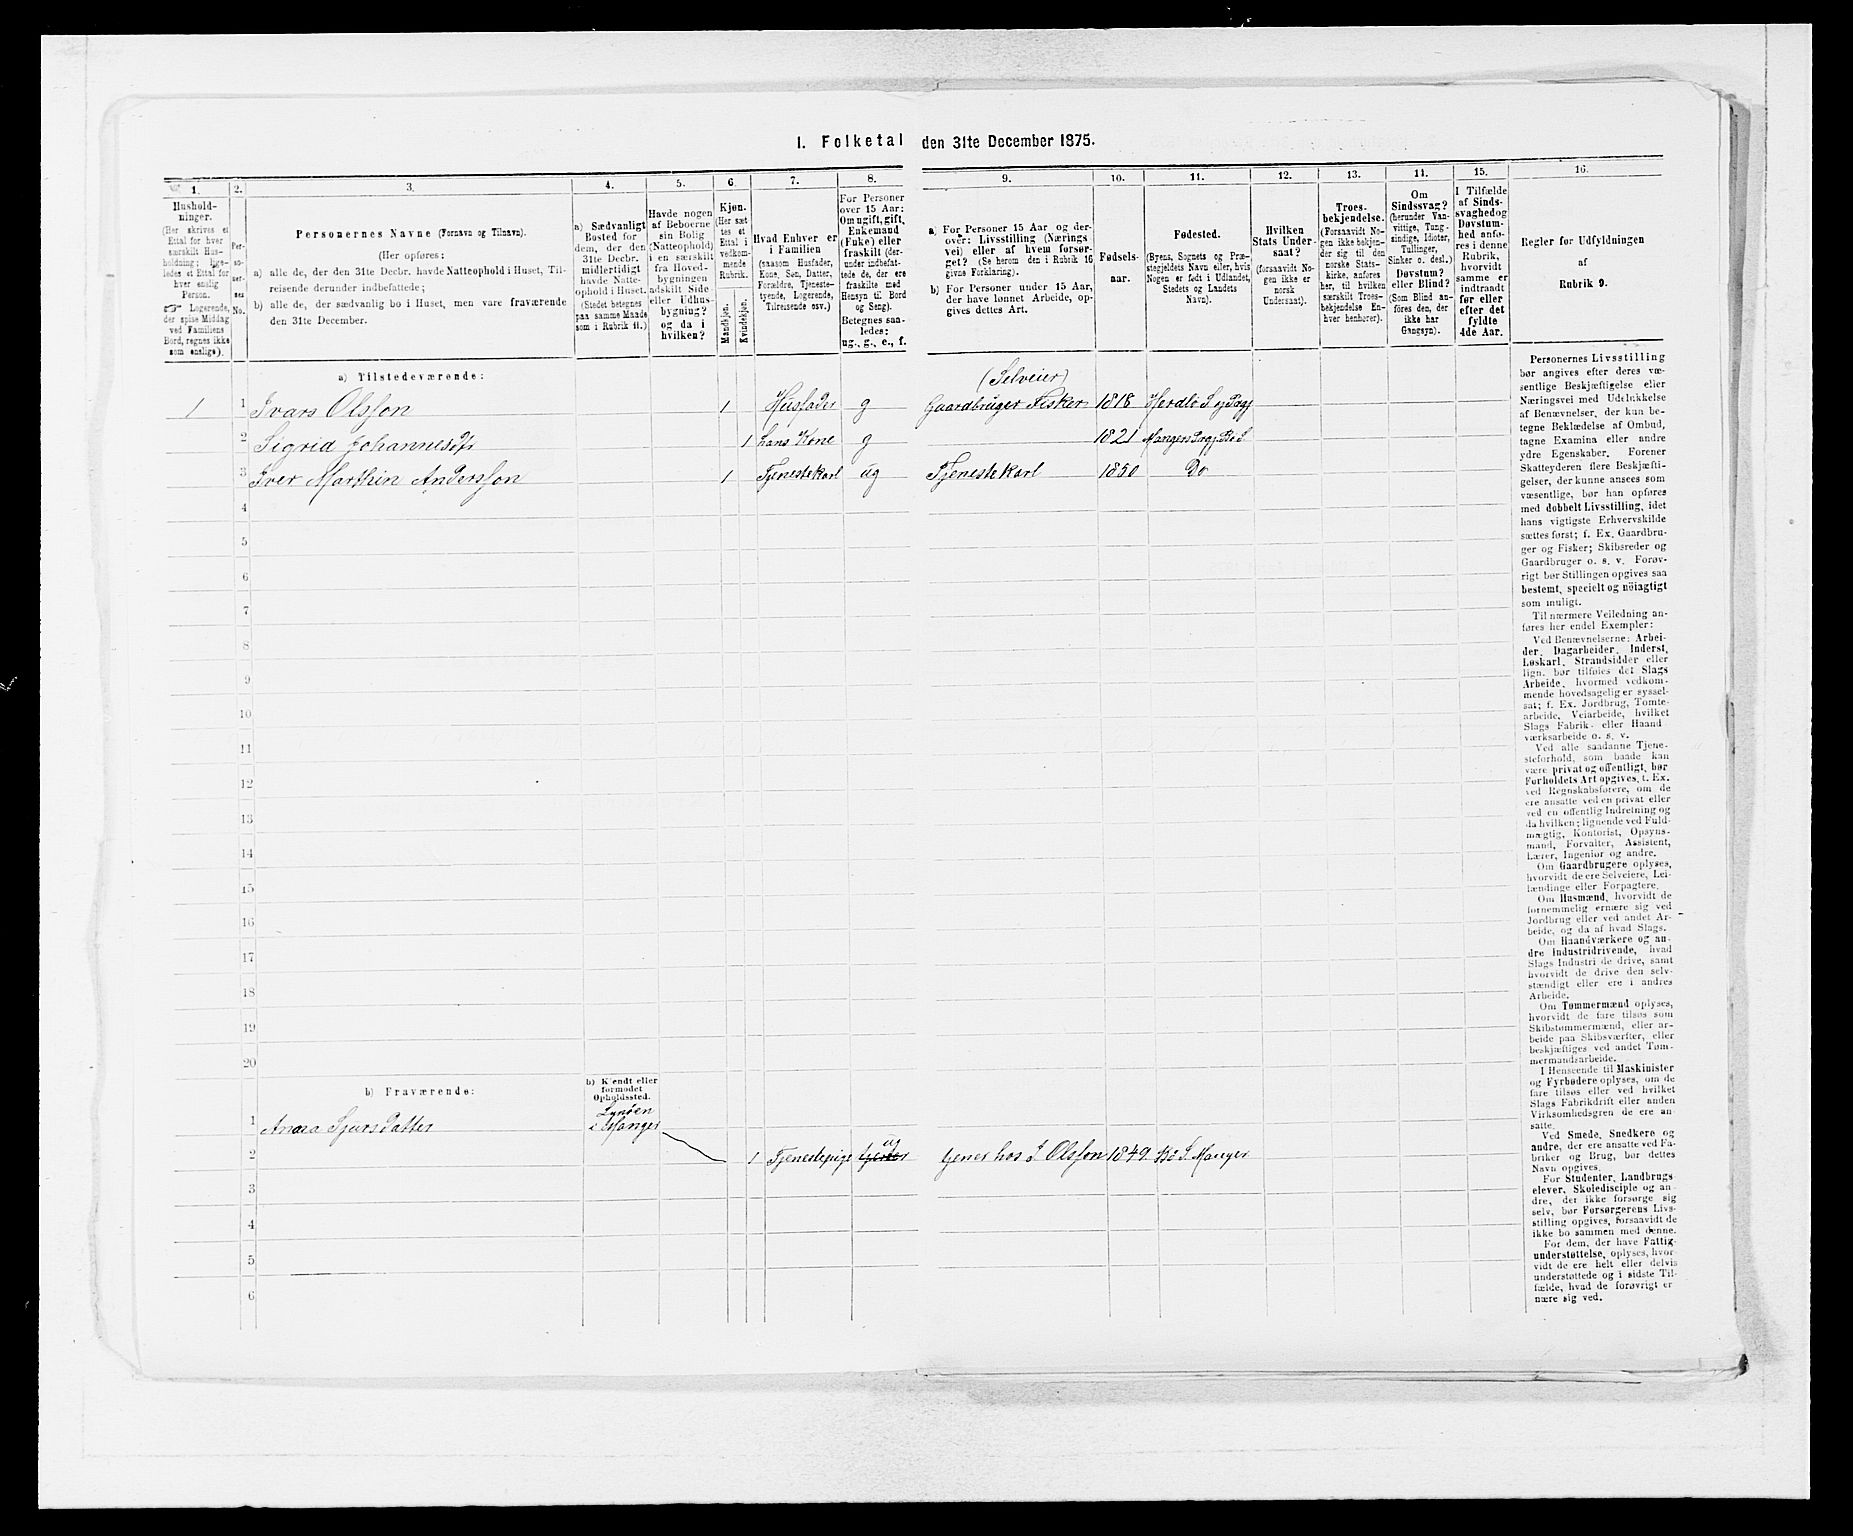 I. Folketal den 31te December 1875.
1. 2. 3. 4. 5. 6. 7. 8. 9. 10. 11. 12. 13. 14. 15. 16.
Hushold-
ninger.
(Her skrives et
Ettal for hver
særskilt Hus-
holdning; lige-
ledes et Ettal for
hver enslig
Person.
☞ Logerende,
der spise Middag
ved Familiens
Bord, regnes ikke
som enslige).
Per-
so-
ner-
nes
No.
Personernes Navne (Fornavn og Tilnavn).
(Her opføres:
a) alle de, der den 31te Decbr. havde Natteophold i Huset, Til-
reisende derunder indbefattede;
b) alle de, der sædvanlig bo i Huset, men vare fraværende
den 31te December.
a) Sædvanligt
Bosted for
dem, der den
31te Decbr.
midlertidigt
havde Natte-
ophold i Huset.
(Stedet betegnes
paa samme Maade
som i Rubrik 11.)
Havde nogen
af Beboerne
sin Bolig
(Natteophold)
i en særskilt
fra Hoved-
bygningen
adskilt Side-
eller Udhus-
bygning?
og da i
hvilken?
Kjøn.
(Her sæt-
tes et
Ettal i
vedkom-
mende
Rubrik.
Mandkjøn.
Kvindekjøn.
Hvad Enhver er
i Familien
(saasom Husfader,
Kone, Søn, Datter,
Forældre, Tjeneste-
tyende, Logerende,
Tilreisende osv.)
For Personer
over 15 Aar:
Om ugift, gift,
Enkemand
(Enke) eller
fraskilt (der-
under indbefat-
tede de, der ere
fraskilte med
Hensyn til Bord
og Seng).
Betegnes saa-
ledes:
ug., g., e., f.
a) For Personer 15 Aar og der-
over: Livsstilling (Nærings-
vei) eller af hvem forsør-
get? (Se herom den i Rubrik 16
givne Forklaring).
b) For Personer under 15 Aar,
der have lønnet Arbeide, op-
gives dettes Art.
Fødsels-
aar.
Fødested.
(Byens, Sognets og Præ-
stegjeldets Navn eller, hvis
Nogen er født i Udlandet,
Stedets og Landets
Navn).
Hvilken
Stats Under-
saat?
(forsaavidt No-
gen ikke er
norsk
Undersaat).
Troes-
bekjendelse.
(Forsaavidt No-
gen ikke bekjen-
der sig til den
norske Stats-
kirke, anføres
her, til hvilken
særskilt Troes-
bekjendelse En-
hver henhører).
Om
Sindssvag?
(herunder Van-
vittige, Tung-
sindige, Idioter,
Tullinger,
Sinker o. desl.)
Døvstum?
eller Blind?
(Som Blind an-
føres den, der
ikke har
Gangsyn).
I Tilfælde
af Sinds-
svaghed og
Døvstum-
hed anfø-
res i denne
Rubrik,
hvorvidt
samme er
indtraadt
før eller
efter det
fyldte
4de Aar.
Regler før Udfyldningen
af
Rubrik 9.
a) Tilstedeværende:
(Selveier)
1 1 Ivars Olsson 1 Husfader g Gaardbruger Fisker 1818 Herdlø S. og Prgj
2 Sigrid Johannesdtr 1 hans Kone g 1821 Manger Prgj. Bø S
3 Iver Marthin Andersson 1 Tjenestekarl ug Tjenestekarl 1850 Do
4
5
6
7
8
9
10
11
12
13
14
15
16
17
18
19
20
b) Fraværende:
b) Kjendt eller
formodet
Opholdssted.
1 Anna Sjursdatter Lynöen
i Manger
2 1 Tjenestepige ug tjener hos I. Olsson 1849 Bø S. Manger
3
4
5
6
Personernes Livsstilling
bør angives efter deres væ-
sentlige Beskjæftigelse eller
Næringsvei med Udelukkelse
af Benævnelser, der kun be-
tegne Beklædelse af Ombud,
tagne Examina eller andre
ydre Egenskaber. Forener
Skatteyderen flere Beskjæfti-
gelser, der kunne ansees som
væsentlige, bør han opføres
med dobbelt Livsstilling, idet
hans vigtigste Erhvervskilde
sættes først; f. Ex. Gaardbru-
ger og Fisker; Skibsreder og
Gaardbruger o. s. v. Forøv-
rigt bør Stillingen opgives saa
bestemt, specielt og nöiagtigt
som muligt.
Til nærmere Veiledning an-
føres her endel Exempler:
Ved Benævnelserne: Arbei-
der, Dagarbeider, Inderst,
Løskarl, Strandsidder eller
lign. bør tilføies det Slags
Arbeide, hvormed vedkom-
mende hovedsagelig er syssel-
sat; f. Ex. Jordbrug, Tomte-
arbeide, Veiarbeide, hvilket
Slags Fabrik- eller Haand
værksarbeide o. s. v.
Ved alle saadanne Tjene-
steforhold, som baade kan
være privat og offentligt, bør
Forholdets Art opgives, t. Ex.
ved Regnskabsførere, om de
ere ansatte ved en privat eller
ved en offentlig Indretning og
da hvilken; lignende ved Fuld-
mægtig, Kontorist, Opsyns-
mand, Forvalter, Assistent,
Lærer, Ingeniør og andre.
Om Gaardbrugere oplyses,
hvorvidt de ere Selveiere, Lei-
lændinge eller Forpagtere.
Om Husmænd, hvorvidt de
fornemmelig ernære sig ved
Jordbrug eller ved andet Ar-
beide, og da af hvad Slags.
Om Haandværkere og an-
dre Industridrivende, hvad
Slags Industri de drive, samt
hvorvidt de drive den selv-
stændigt eller ere i andres
Arbeide.
Om Tømmermænd oplyses,
hvorvidt de fare tilsøs som
Skibstømmermænd, eller ar-
beide paa Skibsværfter, eller
beskjæftiges ved andet Tøm-
mermandsarbeide.
I Henseende til Maskinister
og Fyrbødere oplyses, om de
fare tilsøs eller ved hvilket
Slags Fabrikdrift eller anden
Virksomhedsgren de ere an-
satte.
Ved Smede, Snedkere og
andre, der ere ansatte ved Fa-
briker og Brug, bør dettes
Navn opgives.
For Studenter, Landbrugs-
elever, Skoledisciple og an-
dre, der ikke forsørge sig
selv, bør Forsørgerens Livs-
stilling opgives, forsaavidt de
ikke bo sammen med denne.
For dem, der have Fattig-
understøttelse, oplyses, hvor-
vidt de ere helt eller delvis
understøttede og i sidste Til-
fælde, hvad de forøvrigt er
nære sig ved.